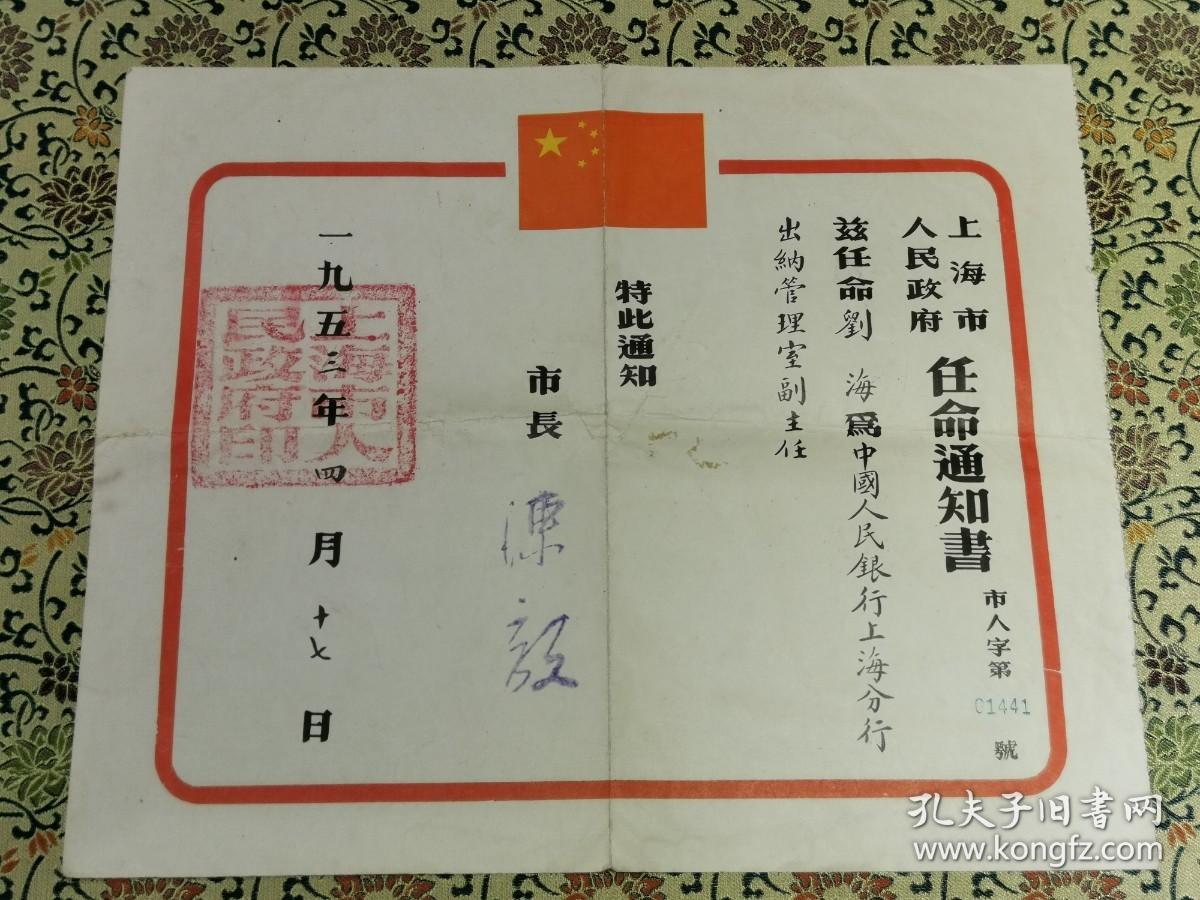 上海市
人民政府
任命通知書
市人字第
01441
號
茲任命劉 海為中國人民銀行上海分行
出納管理室副主任
特此通知
市長
陳毅
一九五三年四月十七日
上海市人
民政府印
孔夫子旧书网
www.kongfz.com